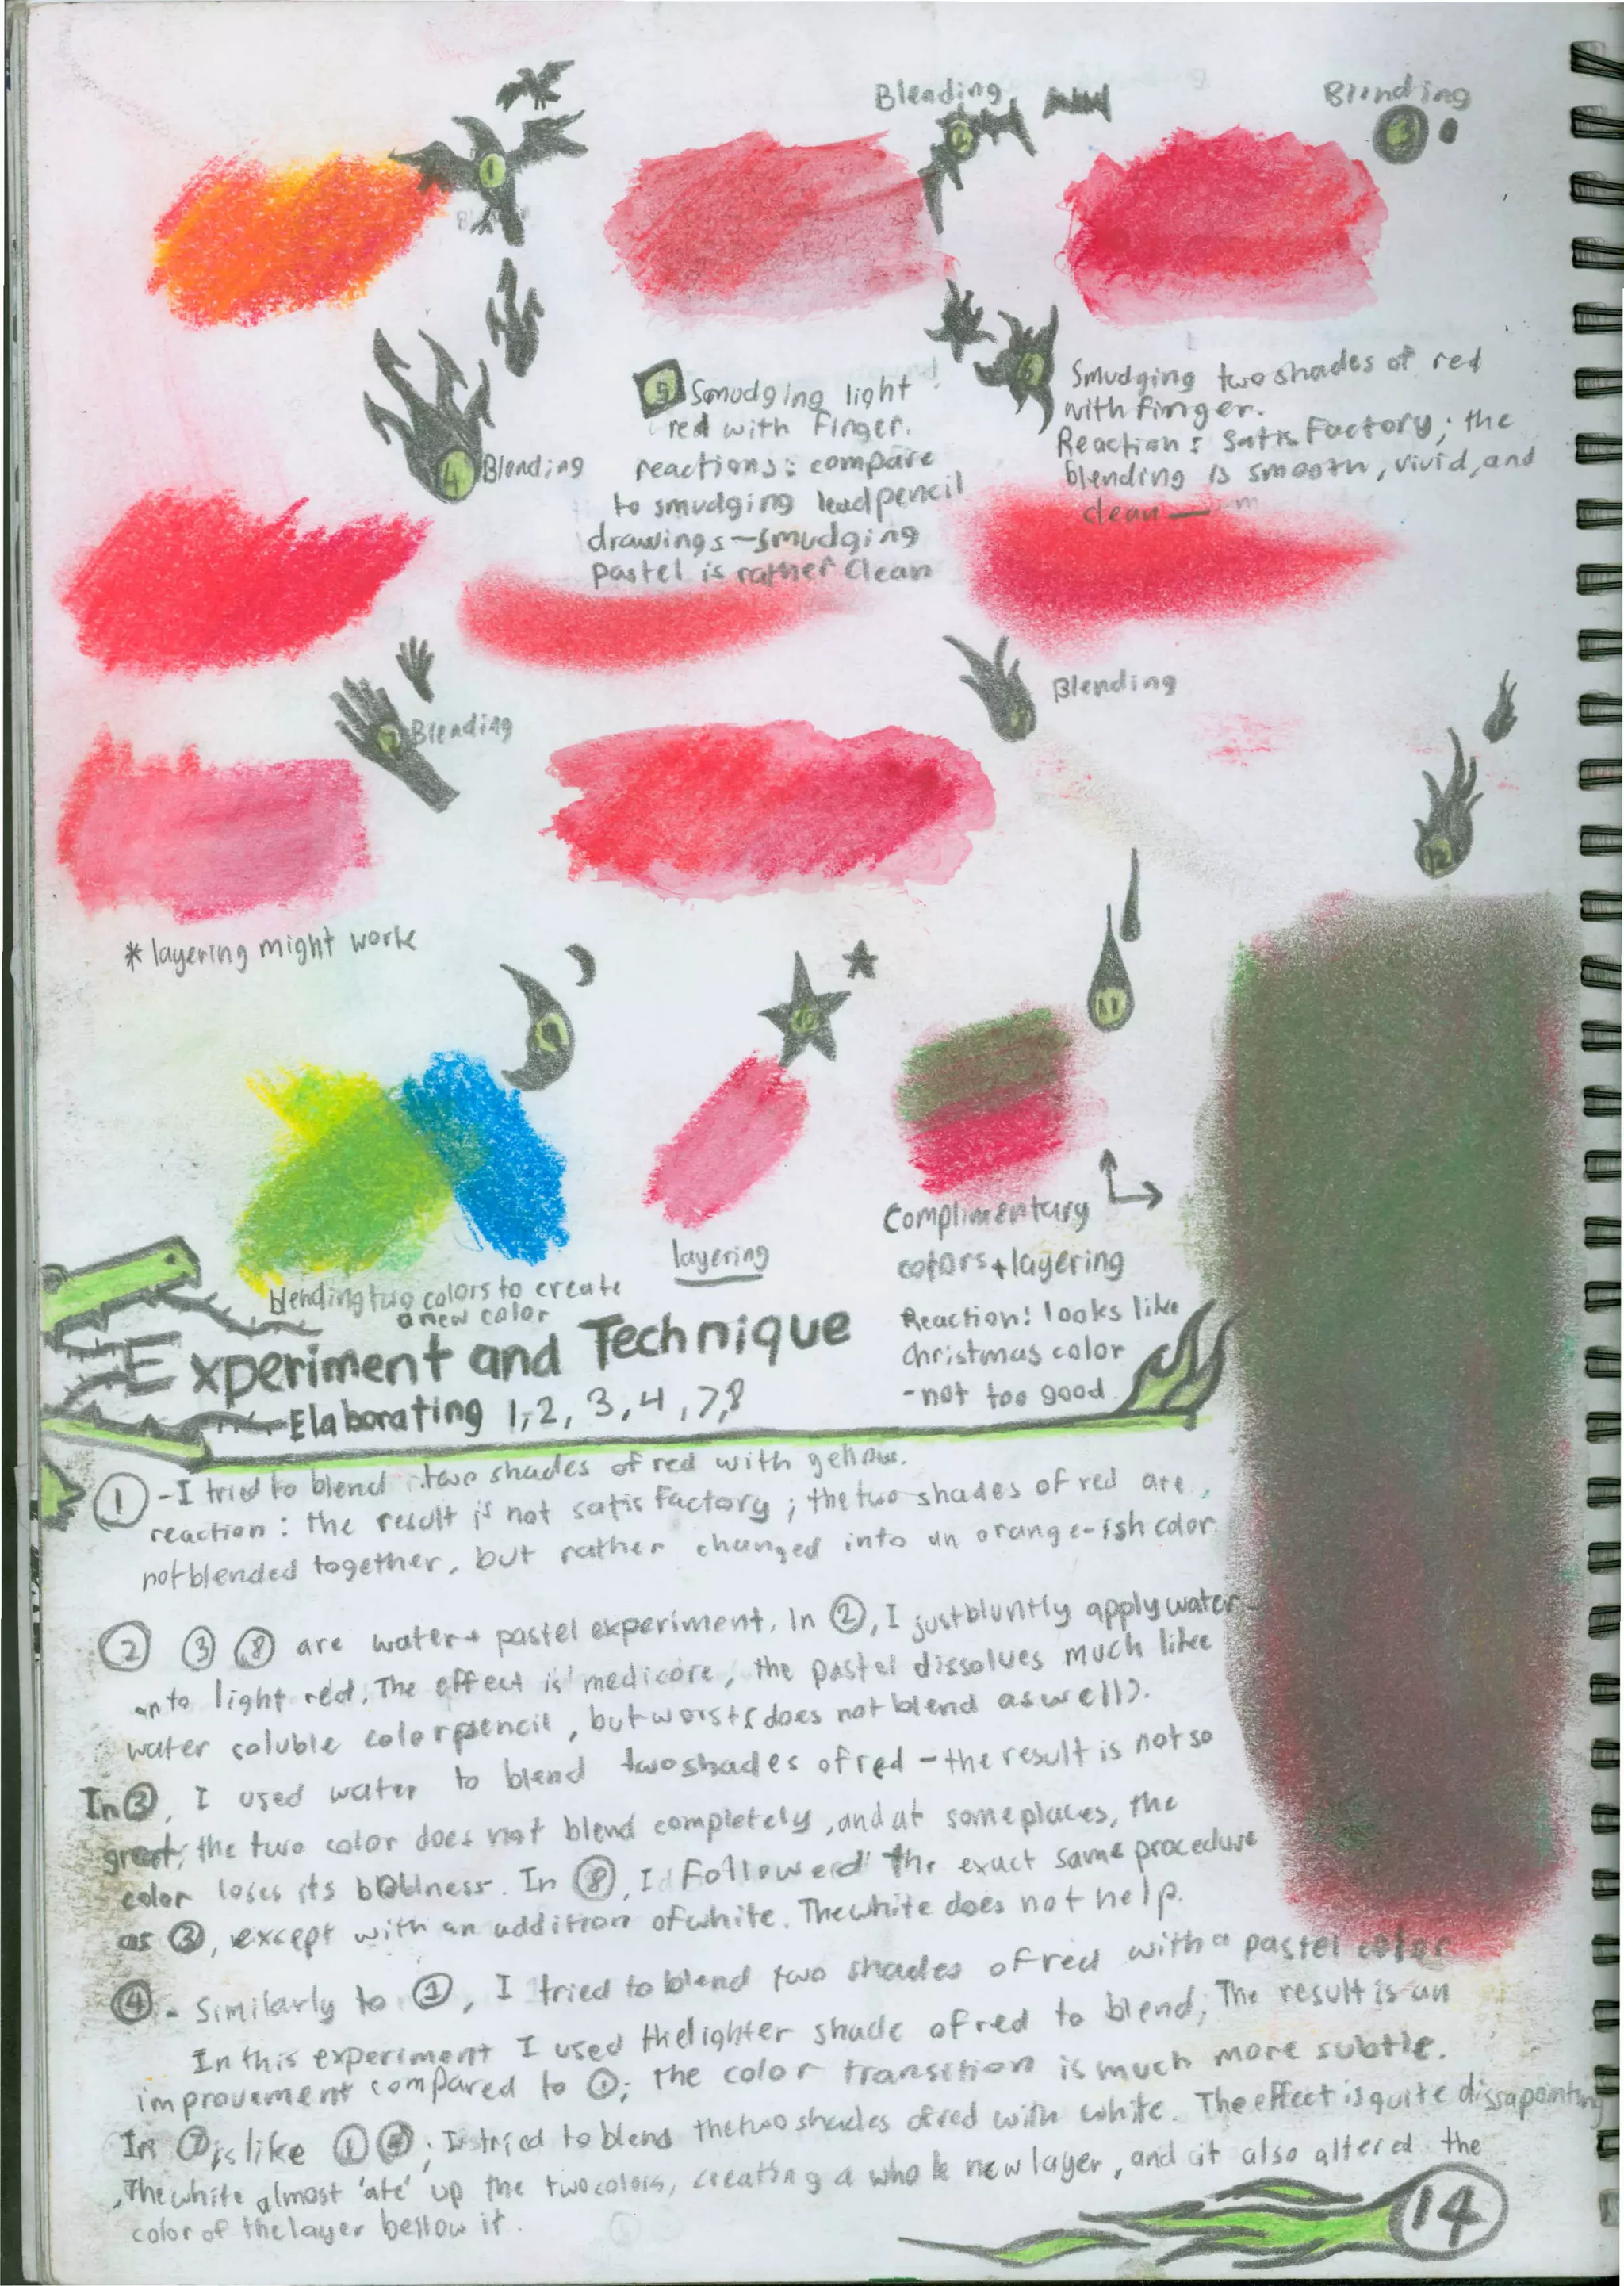 Blending
Blending
1
2
3
4 Blending
5 Smudging light
red with finger.
reactions: compare
to smudging lead pencil
drawings - smudging
pastel is rather clean
6
Smudging two shades of red
with finger.
Reaction: satisfactory; the
blending is smooth, vivid, and
clean
7 Blending
Blending
12
* layering might work
10
11
blending two colors to create
a new color
layering
Complimentary
colors + layering
Reaction: looks like
christmas color
- not too good
Experiment and Technique
Elaborating 1, 2, 3, 4, 7, 8
1 - I tried to blend two shades of red with yellow.
reaction: the result is not satisfactory; the two shades of red are
not blended together, but rather changed into an orange-ish color
2 3 8 are water + pastel experiment. In 2, I just bluntly apply water
onto light red. The effect is medicore, the pastel dissolves much like
water soluble color pencil, but worst (does not blend as well).
In 3, I used water to blend two shades of red - the result is not so
great; the two color does not blend completely, and at some places, the
color loses its boldness. In 8, I followed the exact same procedure
as 3, except with an addition of white. The white does not help.
4 - Similarly to 1, I tried to blend two shades of red with a pastel color
In this experiment I used the lighter shade of red to blend; The result is an
improvement compared to 1; the color transition is much more subtle.
In 7 is like 1 4; I tried to blend the two shades of red with white. The effect is quite dissapointing
The white almost 'ate' up the two colors, creating a whole new layer, and it also altered the
color of the layer bellow it.
14